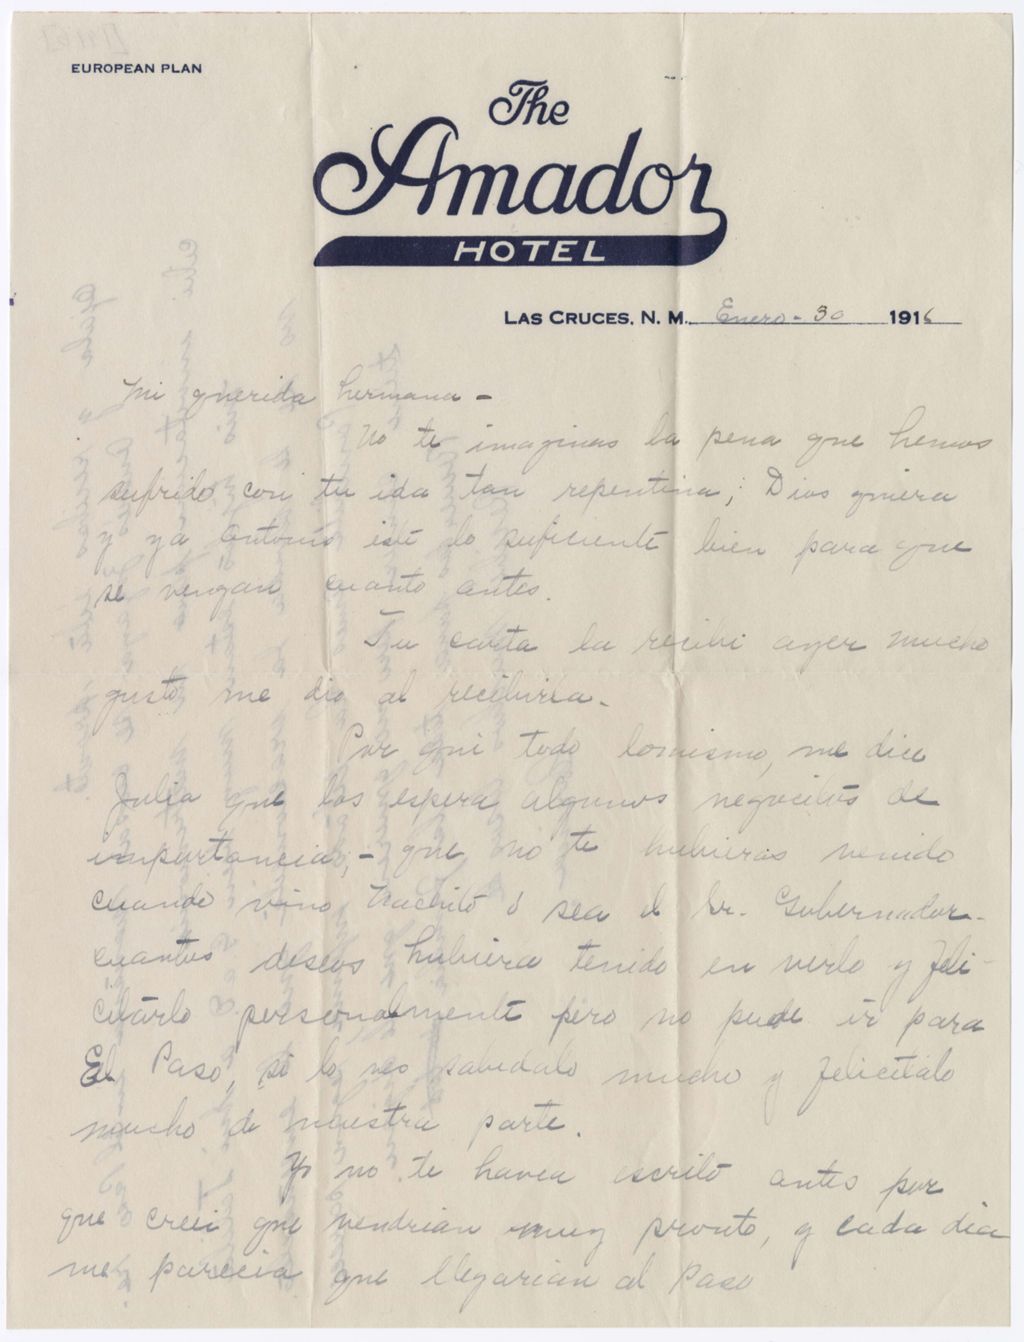 EUROPEAN PLAN
The
Amador
HOTEL
LAS CRUCES, N. M., Enero - 30 1916
Mi querida hermana -
No te imaginas la pena que hemos
sufrido con tu ida tan repentina; Dios quiera
y ya Antonio esté lo suficiente bien para que
se vengan cuanto antes.
Tu carta la recibi ayer mucho
gusto me dio al recibirla.
Por qui todo lomismo, me dice
Julia que los espera algunos negocitos de
importancia; - que no te hubieras venido
cuando vino Nachito ó sea el Sr. Gobernador -
cuantos deseos hubiera tenido en verlo y feli-
citarlo personalmente pero no pude ir para
El Paso, si lo ves saludalo mucho y felicitalo
mucho de nuestra parte.
Yo no te havea escrito antes por
que crei que vendrian muy pronto, y cada dia
me parecia que llegarian al Paso